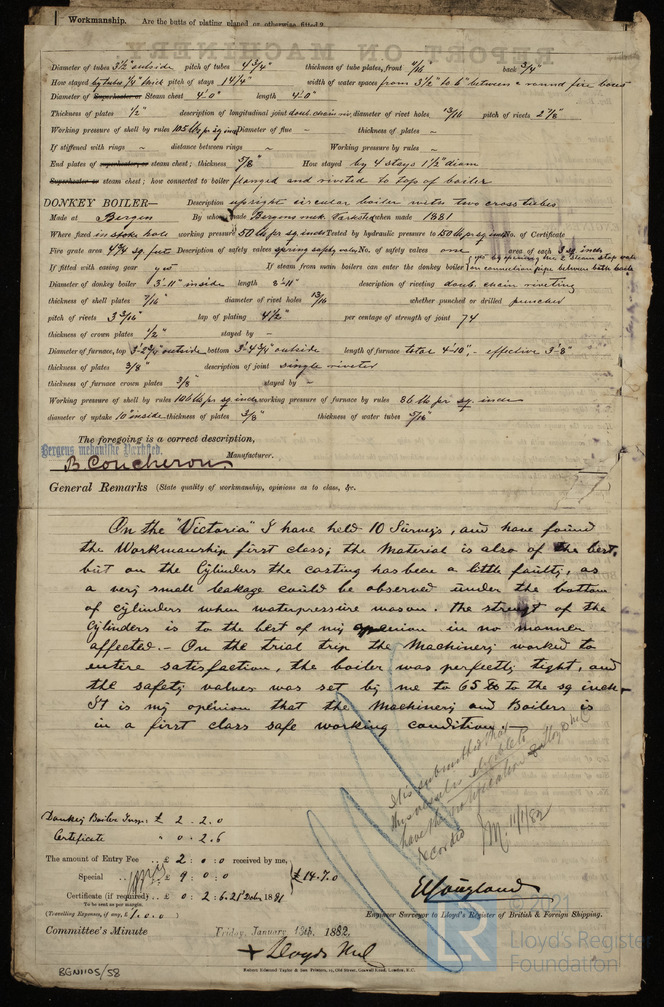 Workmanship. Are the butts of plating planed or otherwise fitted?
REPORT ON MACHINERY
Diameter of tubes 3½" outside pitch of tubes 4¾" thickness of tube plates, front 11/16 back ¾"
How stayed by tubes ¼" thick pitch of stays 14¼" width of water spaces from 3½" to 6" between & round fire boxes
Diameter of Superheater or Steam chest 4'-0" length 4'-0"
Thickness of plates ½" description of longitudinal joint doub. chain riv. diameter of rivet holes 13/16 pitch of rivets 2⅞"
Working pressure of shell by rules 105 lb pr sq inch Diameter of flue ~ thickness of plates ~
If stiffened with rings ~ distance between rings ~ Working pressure by rules ~
End plates of superheater, or steam chest; thickness ⅝" How stayed by 4 stays 1½" diam
Superheater or steam chest; how connected to boiler flanged and riveted to top of boiler
DONKEY BOILER— Description upright circular boiler with two cross tubes
Made at Bergen By whom made Bergens mek. Værksted when made 1881
Where fixed in stoke hole working pressure 50 lb pr sq inch Tested by hydraulic pressure to 150 lb pr sq inch No. of Certificate
Fire grate area 4¾ sq. feet Description of safety valves spring safety valve No. of safety valves one area of each 3 sq. inch
If fitted with easing gear yes If steam from main boilers can enter the donkey boiler yes by opening the 2 steam stop valves on connection pipe between both boilers
Diameter of donkey boiler 3'-11" inside length 8'-11" description of riveting doub. chain riveting
thickness of shell plates 7/16" diameter of rivet holes 13/16 whether punched or drilled punched
pitch of rivets 3 3/16" lap of plating 4½" per centage of strength of joint 74
thickness of crown plates ½" stayed by ~
Diameter of furnace, top 3'-2¾" outside bottom 3'-4¾" outside length of furnace total 4'-10", - effective 3'-8"
thickness of plates ⅜" description of joint single riveted
thickness of furnace crown plates ⅜" stayed by ~
Working pressure of shell by rules 106 lb pr sq inch working pressure of furnace by rules 86 lb pr sq. inch
diameter of uptake 10" inside thickness of plates ⅜" thickness of water tubes 7/16"
The foregoing is a correct description,
Bergens mekaniske Værksted.
B. Coucheron Manufacturer.
General Remarks (State quality of workmanship, opinions as to class, &c.
On the "Victoria" I have held 10 Surveys, and have found
the Workmanship first class; the Material is also of the best,
but on the Cylinders the casting has been a little faulty, as
a very small leakage could be observed under the bottom
of cylinders when waterpressure was on. the strengt of the
Cylinders is to the best of my openion in no manner
affected. — On the trial trip the Machinery worked to
entire satisfaction, the boiler was perfectly tight, and
the safety valves was set by me to 65 lb to the sq inch —
It is my opinion that the Machinery and Boilers is
in a first class safe working condition. —
It is submitted that
this vessel is eligible to
have the notification
recorded 11/1/82
Donkey Boiler Insp. £ 2 . 2 . 0
Certificate " 0 . 2 . 6
The amount of Entry Fee .. £ 2 : 0 : 0 received by me,
Special .. £ 9 : 0 : 0 £ 14.7.0
Certificate (if required) .. £ 0 : 2 : 6. 21st Decbr 1881
To be sent as per margin.
(Travelling Expenses, if any, £ 1.0.0)
Engineer Surveyor to Lloyd's Register of British & Foreign Shipping.
Committee's Minute Friday, January 13th. 1882.
+ Lloyds M.C
Messrs Edmund Taylor & Son Printers, 15, Old Street, Goswell Road, London, E.C.
BGN1105/58
© 2021
LR
Lloyd's Register
Foundation